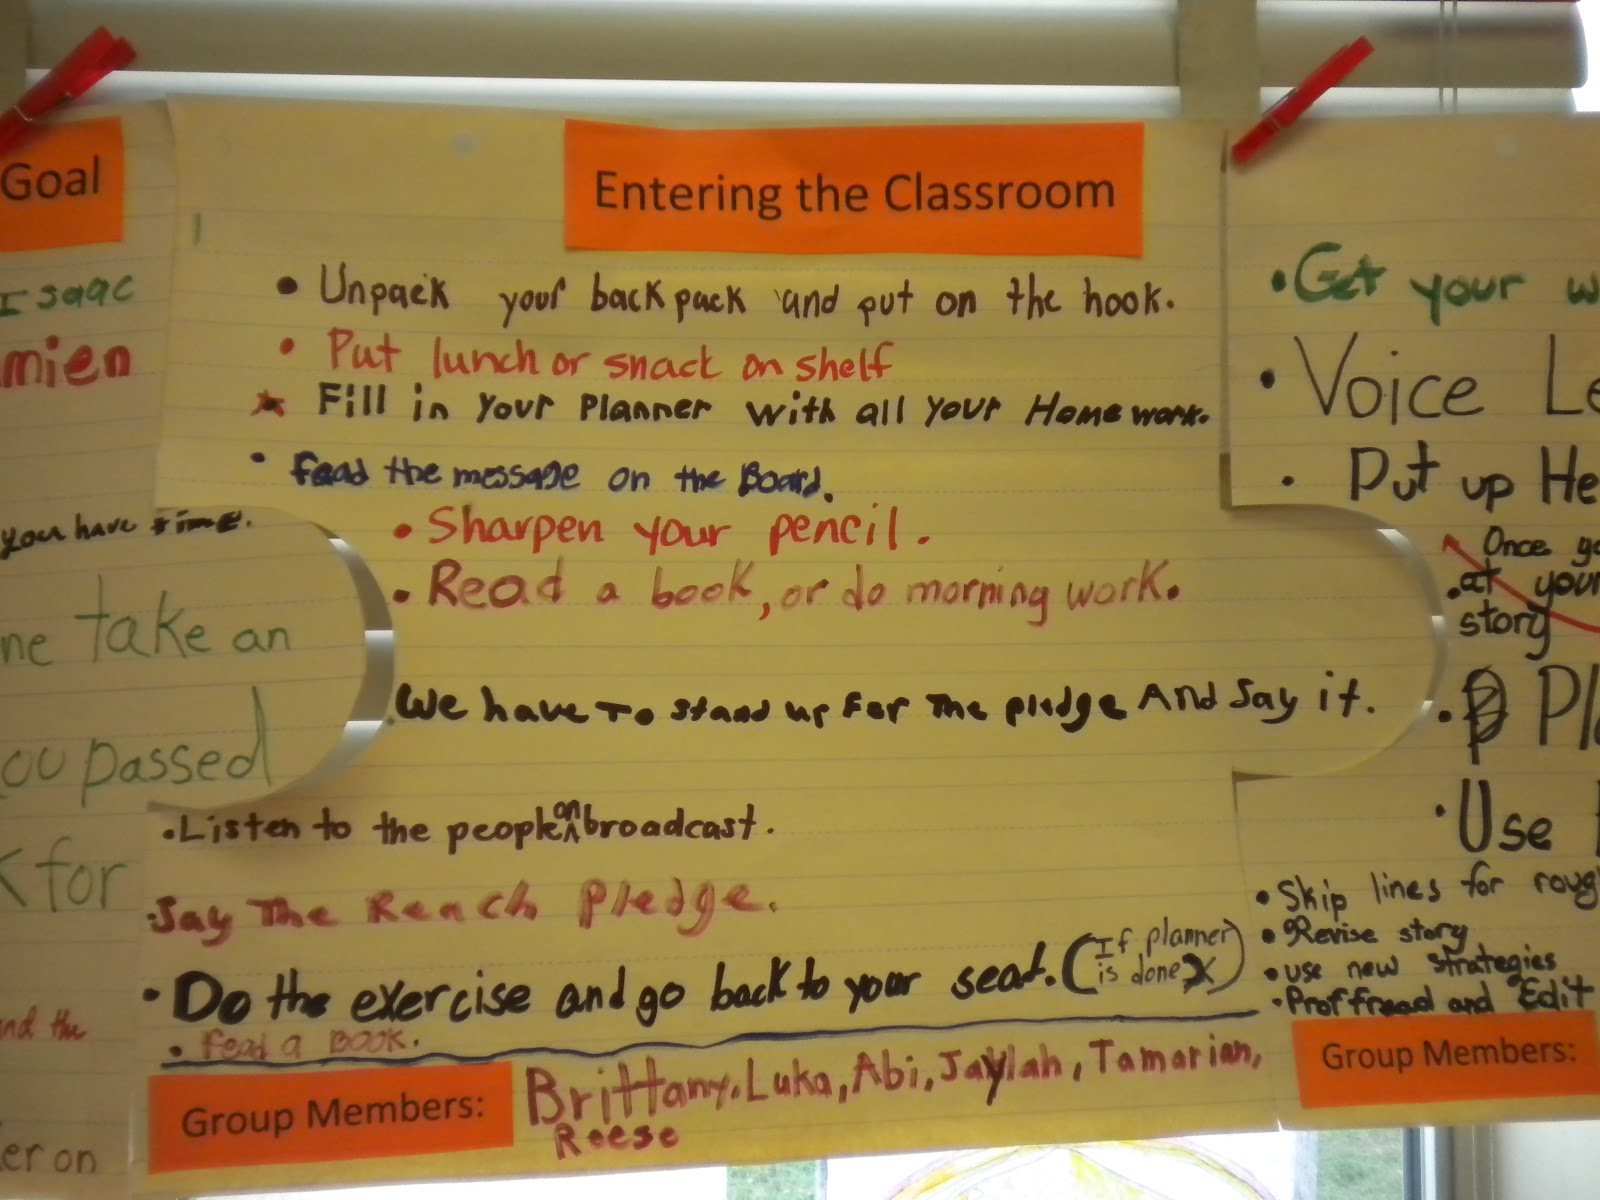 Goal
Isaac
mien
you have time.
ne take an
ou passed
k for
and the
er on
Entering the Classroom
• Unpack your backpack and put on the hook.
• Put lunch or snack on shelf
• Fill in your Planner with all your Home work.
• read the message on the Board.
• Sharpen your pencil.
• Read a book, or do morning work.
• We have To stand up For The pledge And Say it.
• Listen to the people on broadcast.
• Say The Reach Pledge.
• Do the exercise and go back to your seat. (If planner is done)
• read a BOOK.
Group Members: Brittany, Luka, Abi, Jaylah, Tamarian,
Reese
• Get your w
• Voice Le
• Put up He
Once go
• at your
story
• Pla
• Use
• Skip lines for roug
• Revise story
• use new strategies
• Proffread and Edit
Group Members: